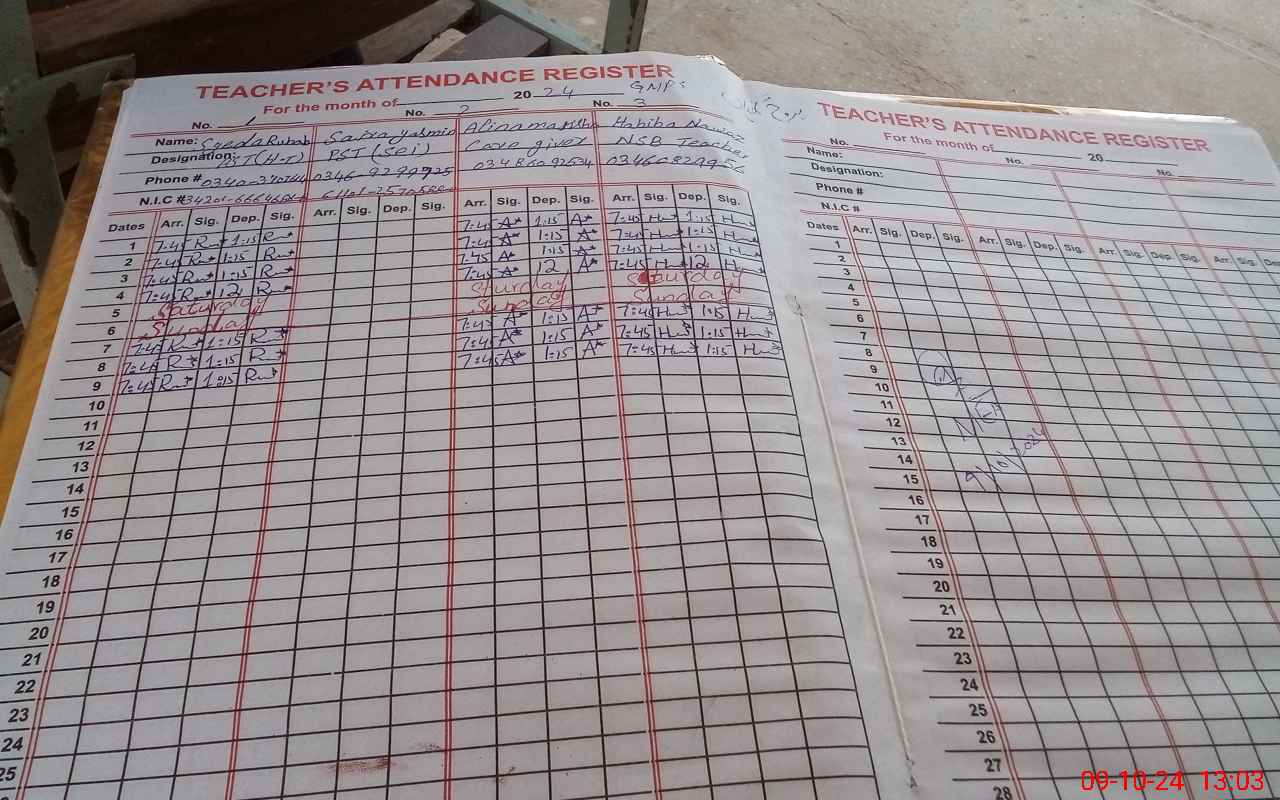 TEACHER'S ATTENDANCE REGISTER
For the month of 2024 GMPS
No. 1 No. 2 No. 3
Name: Syeda Rubab Saira Yasmin Habiba Nawaz
Designation: PST(H-T) PST (Sci) Care giver NSB Teacher
Phone # 0346-9299925 03460829956
N.I.C #
Dates Arr. Sig. Dep. Sig. Arr. Sig. Dep. Sig. Arr. Sig. Dep. Sig. Arr. Sig. Dep. Sig.
1 7:45 1:15 7:45 1:15 7:45 1:15
2 7:45 1:15 7:45 1:15 7:45 1:15
3 7:45 1:15 7:45 1:15 7:45 1:15
4 7:45 12 7:45 12 7:45 12
5 Saturday Sturday Saturday
6 Sunday Sunday Sunday
7 7:45 1:15 7:45 1:15 7:45 1:15
8 7:45 1:15 7:45 1:15 7:45 1:15
9 7:45 1:15 7:45 1:15 7:45 1:15
10
11
12
13
14
15
16
17
18
19
20
21
22
23
24
25
TEACHER'S ATTENDANCE REGISTER
For the month of 20
No. No. No.
Name:
Designation:
Phone #
N.I.C #
Dates Arr. Sig. Dep. Sig. Arr. Sig. Dep. Sig. Arr. Sig. Dep. Sig. Arr. Sig. De
1
2
3
4
5
6
7
8
9
10
11
12
13
14
15
16
17
18
19
20
21
22
23
24
25
26
27
28
MEA
9/10/2024
09-10-24 13:03